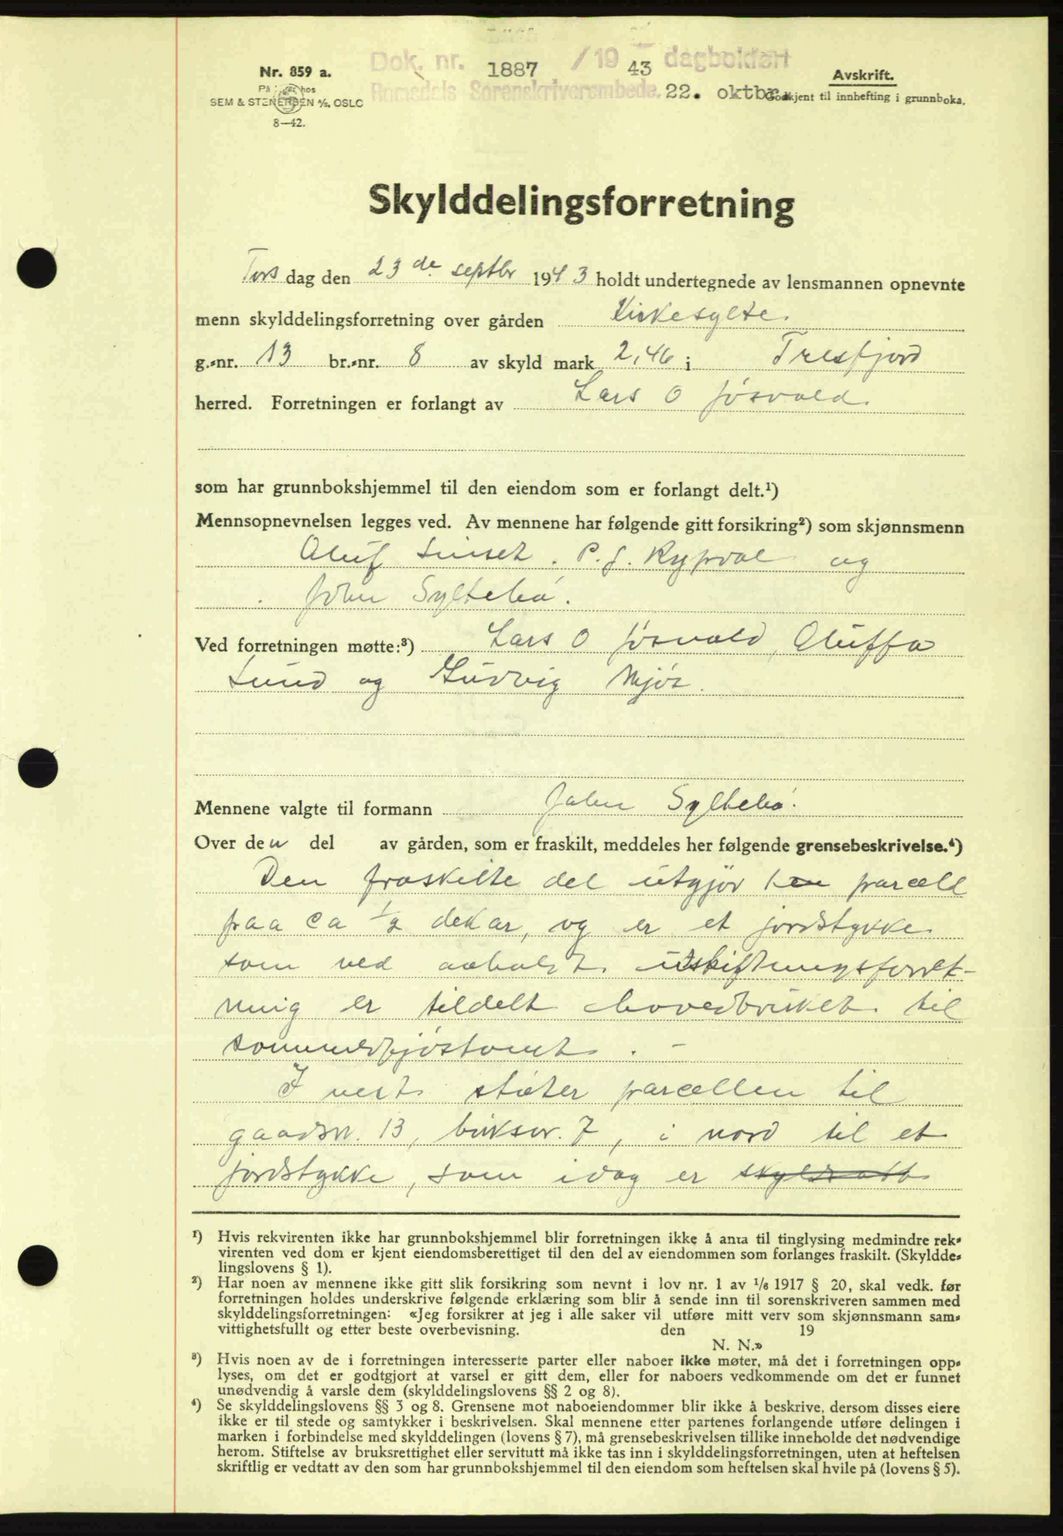 Dok. nr. 1887 / 19 43 dagbokført
Romsdals Sorenskriverembede. 22. oktbr.
Nr. 859 a.
På hos
SEM & STENERSEN A/S, OSLO
8—42.
Avskrift.
Godkjent til innhefting i grunnboka.
Skylddelingsforretning
Tors dag den 23 de septbr 1943 holdt undertegnede av lensmannen opnevnte
menn skylddelingsforretning over gården Kirkesylte.
g.-nr. 13 br.-nr. 8 av skyld mark 2,46 i Tresfjord
herred. Forretningen er forlangt av Lars O Jøsvold.
som har grunnbokshjemmel til den eiendom som er forlangt delt.¹)
Mennsopnevnelsen legges ved. Av mennene har følgende gitt forsikring²) som skjønnsmenn
Oluf P. J. Rypdal og
John Syltebø.
Ved forretningen møtte:³) Lars O Jøsvold, Oluffa
Lund og Ludvig Mjøs.
Mennene valgte til formann John Syltebø.
Over den del av gården, som er fraskilt, meddeles her følgende grensebeskrivelse.⁴)
Den fraskilte del utgjør 1 en parcell
paa ca ½ dekar, og er et jordstykke
som ved avholdt utskiftningsforret-
ning er tildelt hovedbruket til
sommerfjøstomt. —
I vest støter parcellen til
gaardsnr. 13, bruksnr. 7, i nord til et
jordstykke, som idag er skyldsatt
¹) Hvis rekvirenten ikke har grunnbokshjemmel blir forretningen ikke å anta til tinglysing medmindre rek-
virenten ved dom er kjent eiendomsberettiget til den del av eiendommen som forlanges fraskilt. (Skyldde-
lingslovens § 1).
²) Har noen av mennene ikke gitt slik forsikring som nevnt i lov nr. 1 av 1/6 1917 § 20, skal vedk. før
forretningen holdes underskrive følgende erklæring som blir å sende inn til sorenskriveren sammen med
skylddelingsforretningen: «Jeg forsikrer at jeg i alle saker vil utføre mitt verv som skjønnsmann sam-
vittighetsfullt og etter beste overbevisning. den 19
N. N.»
³) Hvis noen av de i forretningen interesserte parter eller naboer ikke møter, må det i forretningen opp-
lyses, om det er godtgjort at varsel er gitt dem, eller for naboers vedkommende om det er funnet
unødvendig å varsle dem (skylddelingslovens §§ 2 og 8).
⁴) Se skylddelingslovens §§ 3 og 8. Grensene mot naboeiendommer blir ikke å beskrive, dersom disses eiere
ikke er til stede og samtykker i beskrivelsen. Skal mennene etter partenes forlangende utføre delingen i
marken i forbindelse med skylddelingen (lovens § 7), må grensebeskrivelsen tillike inneholde det nødvendige
herom. Stiftelse av bruksrettighet eller servitutt må ikke tas inn i skylddelingsforretningen, uten at heftelsen
skriftlig er vedtatt av den som har grunnbokshjemmel til den eiendom som heftelsen skal hvile på (lovens § 5).